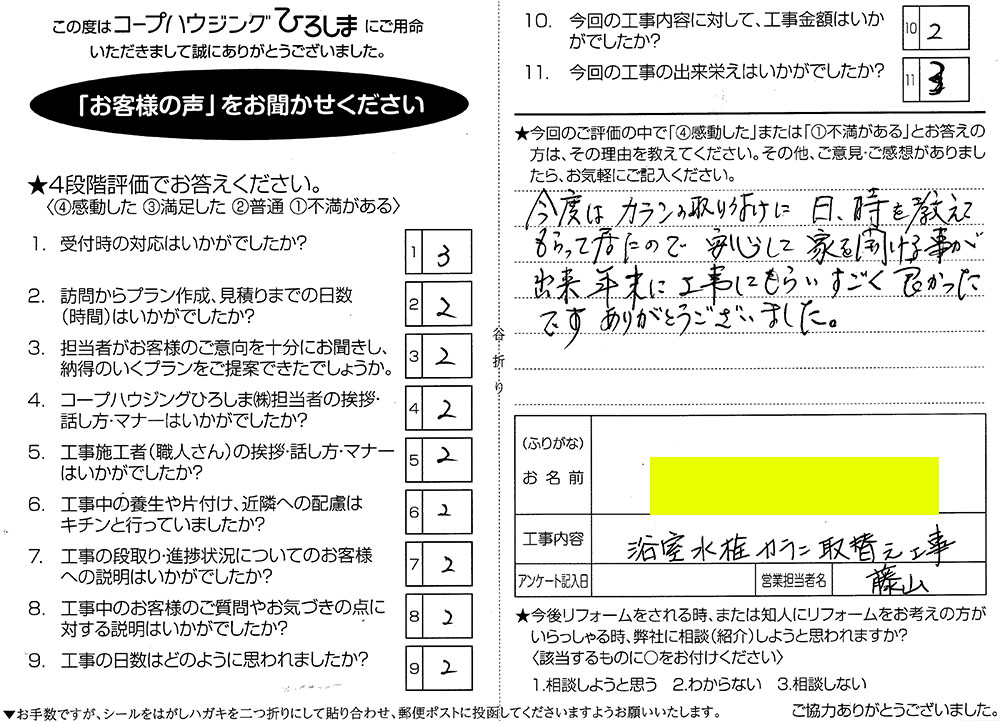 この度はコープハウジングひろしまにご用命
いただきまして誠にありがとうございました。
「お客様の声」をお聞かせください
★4段階評価でお答えください。
〈④感動した ③満足した ②普通 ①不満がある〉
1. 受付時の対応はいかがでしたか?
1 3
2. 訪問からプラン作成、見積りまでの日数
(時間)はいかがでしたか?
2 2
3. 担当者がお客様のご意向を十分にお聞きし、
納得のいくプランをご提案できたでしょうか。
3 2
4. コープハウジングひろしま㈱担当者の挨拶・
話し方・マナーはいかがでしたか?
4 2
5. 工事施工者(職人さん)の挨拶・話し方・マナー
はいかがでしたか?
5 2
6. 工事中の養生や片付け、近隣への配慮は
キチンと行っていましたか?
6 2
7. 工事の段取り・進捗状況についてのお客様
への説明はいかがでしたか?
7 2
8. 工事中のお客様のご質問やお気づきの点に
対する説明はいかがでしたか?
8 2
9. 工事の日数はどのように思われましたか?
9 2
▼お手数ですが、シールをはがしハガキを二つ折りにして貼り合わせ、郵便ポストに投函してくださいますようお願いいたします。
谷折り
10. 今回の工事内容に対して、工事金額はいか
がでしたか?
10 2
11. 今回の工事の出来栄えはいかがでしたか?
11 3
★今回のご評価の中で「④感動した」または「①不満がある」とお答えの
方は、その理由を教えてください。その他、ご意見・ご感想がありまし
たら、お気軽にご記入ください。
今度は カランの取り付けに 日、時を教えて
もらって居たので 安心して 家を開ける事が
出来 年末に 工事してもらいすごく 良かった
です ありがとうございました。
(ふりがな)
お名前
工事内容
浴室水栓カラン取替え工事
アンケート記入日
営業担当者名
藤山
★今後リフォームをされる時、または知人にリフォームをお考えの方が
いらっしゃる時、弊社に相談(紹介)しようと思われますか?
〈該当するものに○をお付けください〉
1.相談しようと思う 2.わからない 3.相談しない
ご協力ありがとうございました。